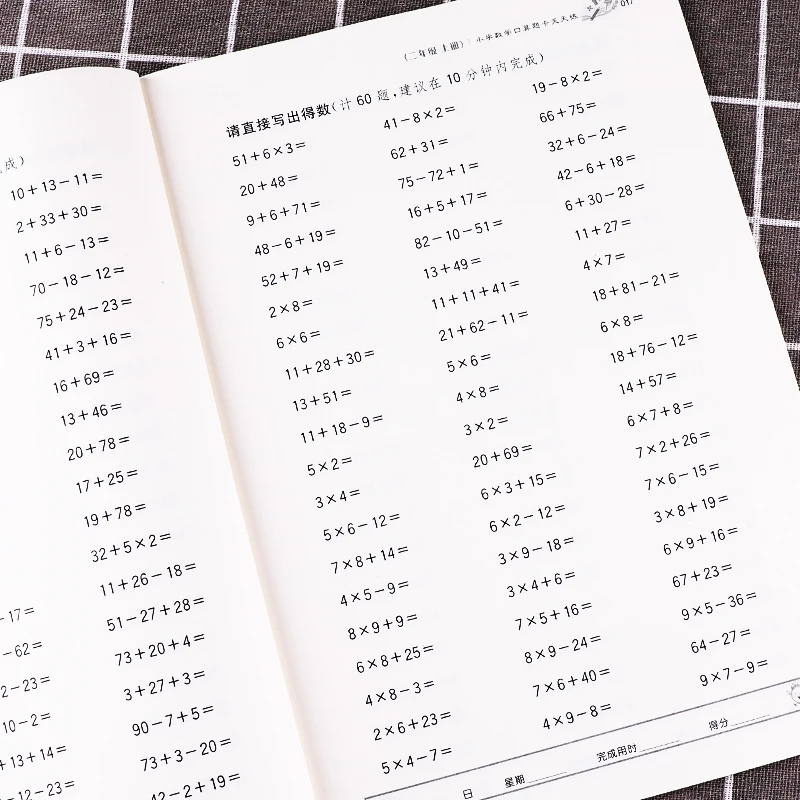 成)
10+13-11=
2+33+30=
11+6-13=
70-18-12=
75+24-23=
41+3+16=
16+69=
13+46=
20+78=
17+25=
19+78=
32+5×2=
11+26-18=
-17= 51-27+28=
-62= 73+20+4=
2-23= 3+27+3=
10-2= 90-7+5=
+13+14= 73+3-20=
-12-23= 42-2+19=
(二年级 上册) 小学数学口算题卡天天练 017
请直接写出得数(计 60 题,建议在 10 分钟内完成)
51+6×3= 41-8×2= 19-8×2=
20+48= 62+31= 66+75=
9+6+71= 75-72+1= 32+6-24=
48-6+19= 16+5+17= 42-6+18=
52+7+19= 82-10-51= 6+30-28=
2×8= 13+49= 11+27=
6×6= 11+11+41= 4×7=
11+28+30= 21+62-11= 18+81-21=
13+51= 5×6= 6×8=
11+18-9= 4×8= 18+76-12=
5×2= 3×2= 14+57=
3×4= 20+69= 6×7+8=
5×6-12= 6×3+15= 7×2+26=
7×8+14= 6×2-12= 7×6-15=
4×5-9= 3×9-18= 3×8+19=
8×9+9= 3×4+6= 6×9+16=
6×8+25= 7×5+16= 67+23=
4×8-3= 8×9-24= 9×5-36=
2×6+23= 7×6+40= 64-27=
5×4-7= 4×9-8= 9×7-9=
日 星期 完成用时 得分